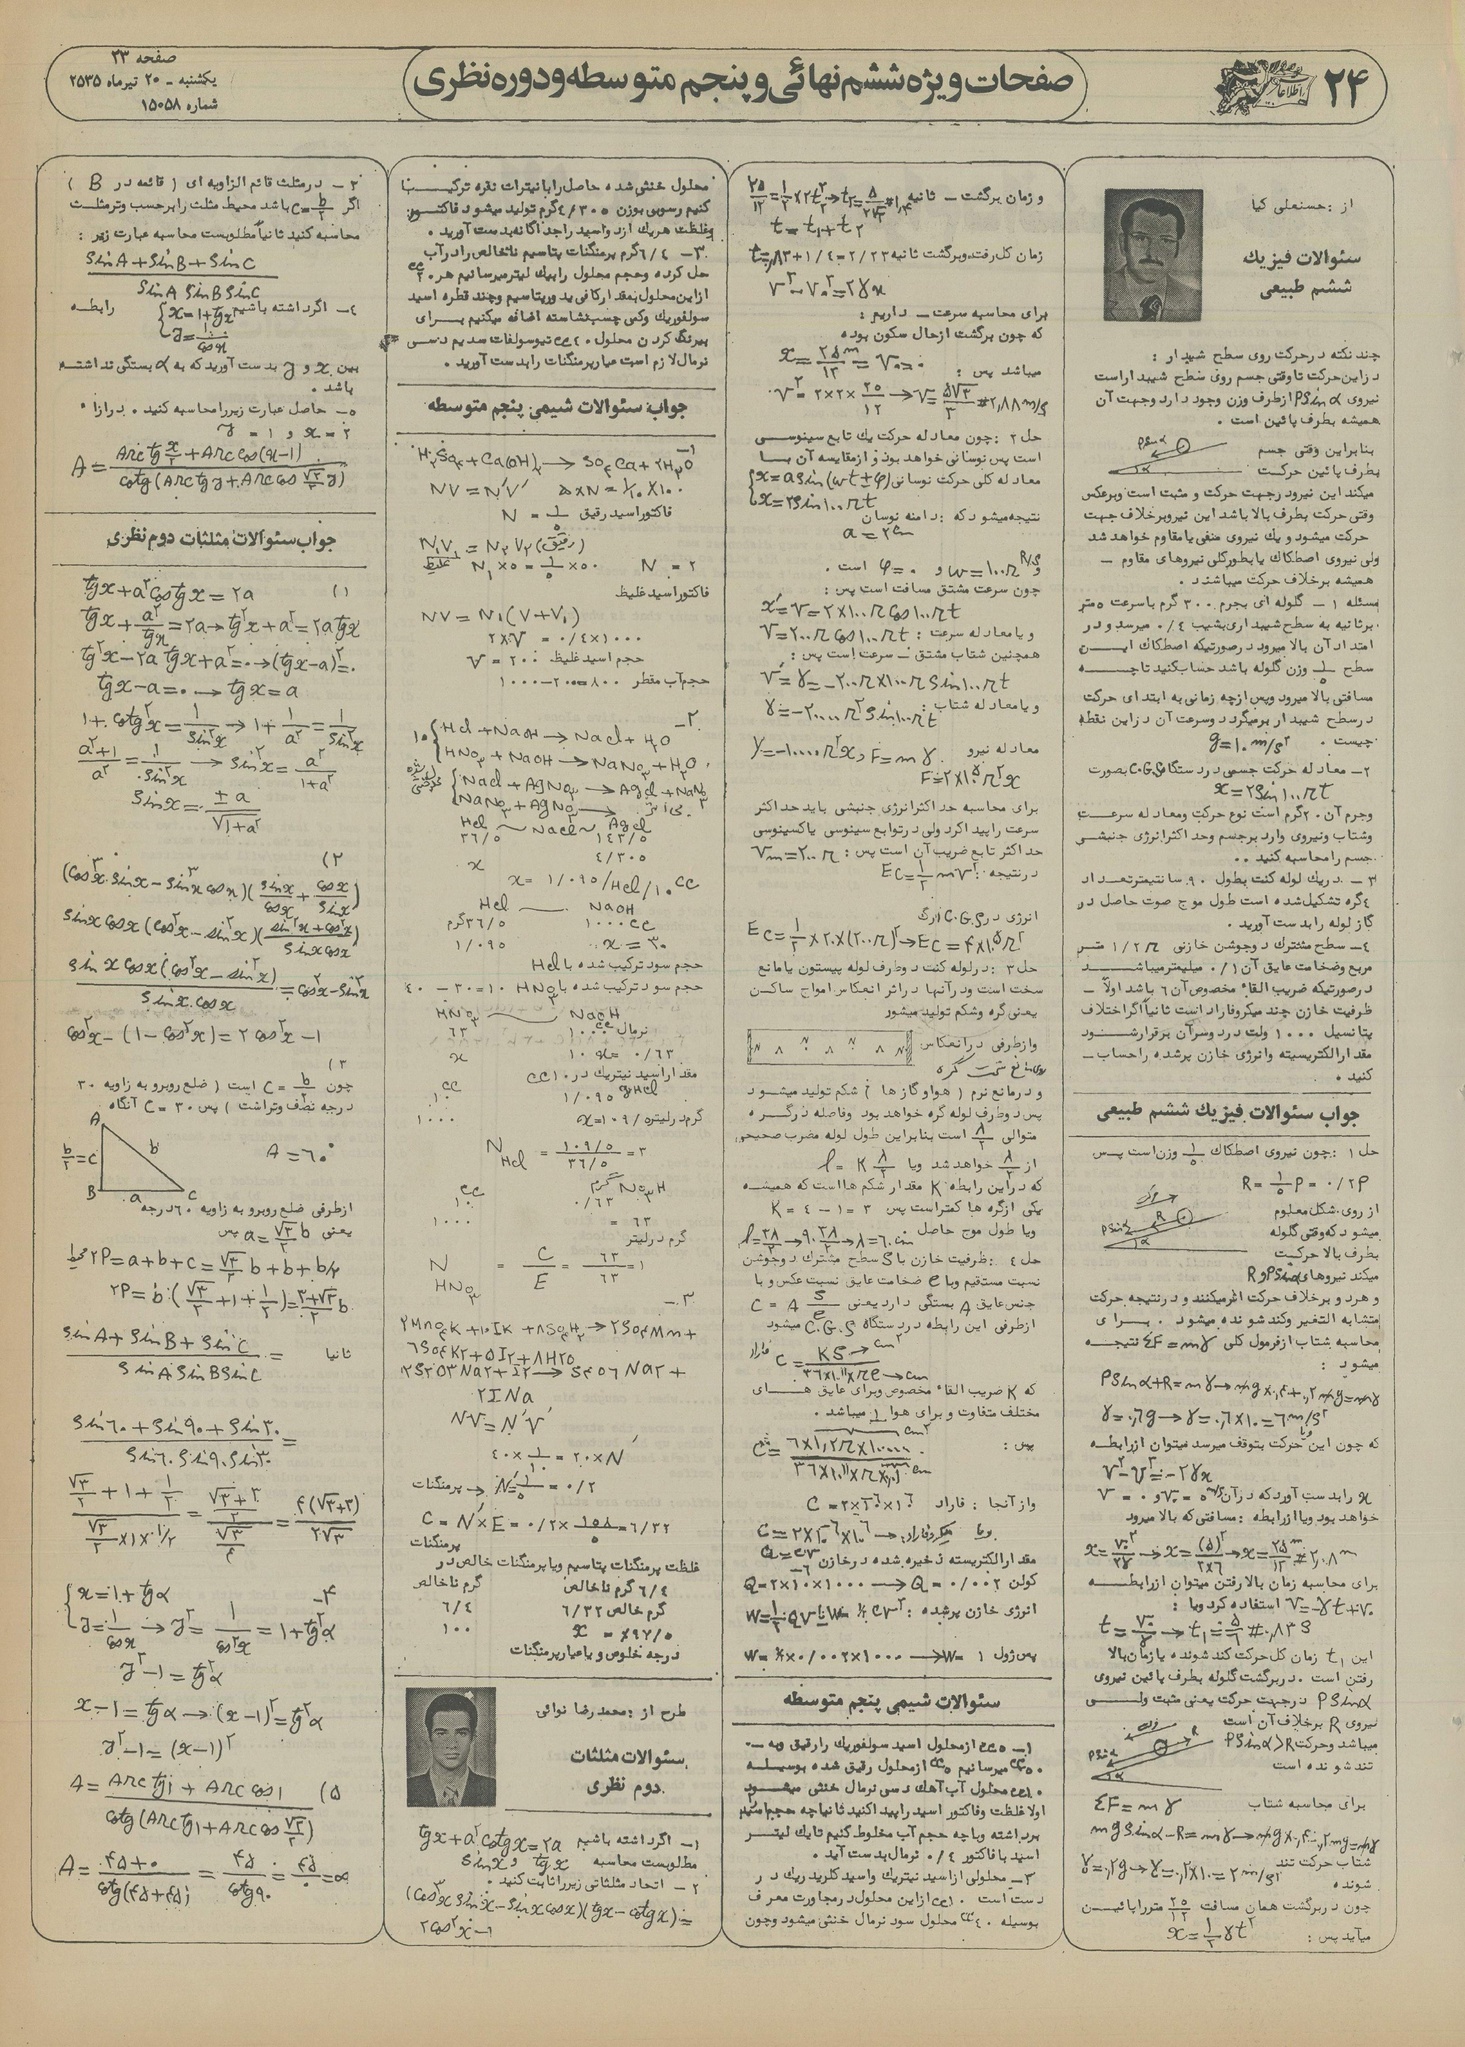 صفحه ۲۳
یکشنبه - ۲۰ تیرماه ۲۵۳۵
شماره ۱۵۰۵۸
صفحات ویژه ششم نهائی و پنجم متوسطه و دوره نظری
۲۴
از : حسنعلی کیا
سئوالات فیزیک
ششم طبیعی
چند نکته در حرکت روی سطح شیبدار :
در این حرکت تا وقتی جسم روی سطح شیبدار است
نیروی PSinα از طرف وزن وجود دارد و جهت آن
همیشه بطرف پائین است .
بنابراین وقتی جسم
بطرف پائین حرکت
میکند این نیرو در جهت حرکت و مثبت است و برعکس
وقتی حرکت بطرف بالا باشد این نیرو برخلاف جهت
حرکت میشود و یک نیروی منفی یا مقاوم خواهد شد
ولی نیروی اصطکاک یا بطور کلی نیروهای مقاوم -
همیشه برخلاف حرکت میباشند .
مسئله ۱ - گلوله ای بجرم ۳۰۰ گرم با سرعت ۵ متر
بر ثانیه به سطح شیبداری بشیب ۰/۴ میرسد و در
امتداد آن بالا میرود در صورتیکه اصطکاک این
سطح ۱/۵ وزن گلوله باشد حساب کنید تا چه
مسافتی بالا میرود و پس از چه زمانی به ابتدای حرکت
در سطح شیبدار برمیگردد و سرعت آن در این نقطه
چیست . g=۱۰ m/s²
۲- معادله حرکت جسمی در دستگاه C.G.S بصورت
x=۲Sin۱۰۰πt
و جرم آن ۲۰ گرم است نوع حرکت و معادله سرعت
و شتاب و نیروی وارد بر جسم و حداکثر انرژی جنبشی
جسم را محاسبه کنید ..
۳ - در یک لوله کنت بطول ۹۰ سانتیمتر تعداد
۴ گره تشکیل شده است طول موج صوت حاصل در
گاز لوله را بدست آورید .
۴- سطح مشترک دو جوشن خازنی ۱/۲π متر
مربع و ضخامت عایق آن ۰/۱ میلیمتر میباشد
در صورتیکه ضریب القاء مخصوص آن ۶ باشد اولاً -
ظرفیت خازن چند میکروفاراد است ثانیاً اگر اختلاف
پتانسیل ۱۰۰۰ ولت در دو سر آن برقرار شود
مقدار الکتریسیته و انرژی خازن پر شده را حساب -
کنید .
جواب سئوالات فیزیک ششم طبیعی
حل ۱ : چون نیروی اصطکاک ۱/۵ وزن است پس
R = ۱/۵ P = ۰/۲P
از روی شکل معلوم
میشود که وقتی گلوله
بطرف بالا حرکت
میکند نیروهای PSinα و R
و هر دو برخلاف حرکت اثر میکنند و در نتیجه حرکت
متشابه التغییر و کند شونده میشود . برای
محاسبه شتاب از فرمول کلی ΣF = mγ نتیجه
میشود :
γ=۰,۶g → γ=۰,۶×۱۰=۶ m/s²
که چون این حرکت بتوقف میرسد میتوان از رابطه
V²-V₀²=-۲γx
خواهد بود و یا از رابطه : مسافتی که بالا میرود
برای محاسبه زمان بالا رفتن میتوان از رابطه
V=-γt+V₀ استفاده کرد و یا :
این t₁ زمان کل حرکت کند شونده یا زمان بالا
رفتن است . در برگشت گلوله بطرف پائین نیروی
PSinα در جهت حرکت یعنی مثبت ولی
نیروی R برخلاف آن است
میباشد و حرکت PSinα>R
تند شونده است
برای محاسبه شتاب ΣF=mγ
شتاب حرکت تند شونده γ=۰,۲g → γ=۰,۲×۱۰=۲ m/s²
چون در برگشت همان مسافت ۲۵/۱۲ متر را پائین
میآید پس : x=۱/۲ γt²
و زمان برگشت - ثانیه
t=t₁+t₂
زمان کل رفت و برگشت ثانیه ۲/۲۳=۱/۴+۰,۸۳=t
V²-V₀²=۲γx
برای محاسبه سرعت - داریم :
که چون برگشت از حال سکون بوده
x=۲۵/۱۲ m V₀=۰
میباشد پس :
V²=۲×۲×۲۵/۱۲ → V=۵√۳/۳ # ۲,۸۸m/s
حل ۲ : چون معادله حرکت یک تابع سینوسی
است پس نوسانی خواهد بود و از مقایسه آن با
معادله کلی حرکت نوسانی x=aSin(ωt+φ)
x=۲Sin۱۰۰πt
نتیجه میشود که : دامنه نوسان
a=۲cm
و ω=۱۰۰π R/S و φ=۰ است .
چون سرعت مشتق مسافت است پس :
x'=V=۲×۱۰۰π Cos۱۰۰πt
و یا معادله سرعت : V=۲۰۰π Cos۱۰۰πt
همچنین شتاب مشتق - سرعت است پس :
V'=γ=-۲۰۰π×۱۰۰π Sin۱۰۰πt
و یا معادله شتاب : γ=-۲۰۰۰۰π²Sin۱۰۰πt
معادله نیرو γ=-۱۰۰۰۰π²x و F=mγ
برای محاسبه حداکثر انرژی جنبشی باید حداکثر
سرعت را پیدا کرد ولی در توابع سینوسی یا کسینوسی
حداکثر تابع ضریب آن است پس : Vm=۲۰۰π
در نتیجه : EC=۱/۲ mV²
انرژی در C.G.S ارگ
حل ۳ : در لوله کنت دو طرف لوله پیستون یا مانع
سخت است و در آنها در اثر انعکاس امواج ساکن
یعنی گره و شکم تولید میشود
و از طرفی در انعکاس
روی مانع سخت گره
و در مانع نرم ( هوا و گازها ) شکم تولید میشود
پس دو طرف لوله گره خواهد بود و فاصله دو گره
متوالی λ/۲ است بنابراین طول لوله مضرب صحیحی
از λ/۲ خواهد شد و یا l = K λ/۲
که در این رابطه K مقدار شکم ها است که همیشه
یکی از گره ها کمتر است پس K = ۴ - ۱ = ۳
و یا طول موج حاصل l=۳λ/۲ → ۹۰=۳λ/۲ → λ=۶۰ cm
حل ۴ : ظرفیت خازن با S سطح مشترک دو جوشن
نسبت مستقیم و با e ضخامت عایق نسبت عکس و با
جنس عایق A بستگی دارد یعنی C = A S/e
از طرفی این رابطه در دستگاه C.G.S میشود
که K ضریب القاء مخصوص و برای عایق های
مختلف متفاوت و برای هوا ۱ میباشد .
پس :
و از آنجا : فاراد
مقدار الکتریسته ذخیره شده در خازن Q=CV
کولن Q = ۰/۰۰۲
انرژی خازن پر شده :
پس ژول ۱ W= ← ۱/۲×۰/۰۰۲×۱۰۰۰ =W
سئوالات شیمی پنجم متوسطه
۱- ۵cc از محلول اسید سولفوریک را رقیق و به -
۵۰cc میرسانیم ۵cc از محلول رقیق شده بوسیله
۱۰cc محلول آب آهک دسی نرمال خنثی میشود
اولا غلظت و فاکتور اسید را پیدا کنید ثانیا چه حجم اسید
برداشته و با چه حجم آب مخلوط کنیم تا یک لیتر
اسید با فاکتور ۰/۴ نرمال بدست آید .
۲- محلولی از اسید نیتریک و اسید کلریدریک در
دست است . ۱۰cc از این محلول در مجاورت معرف
بوسیله ۴۰cc محلول سود نرمال خنثی میشود و چون
محلول خنثی شده حاصل را با نیترات نقره ترکیب
کنیم رسوبی بوزن ۴/۳۰۵ گرم تولید میشود فاکتور
و غلظت هر یک از دو اسید را جداگانه بدست آورید .
۳- ۶/۴ گرم پرمنگنات پتاسیم ناخالص را در آب
حل کرده و حجم محلول را بیک لیتر میرسانیم هر ۲۰cc
از این محلول بمقدار کافی یدور پتاسیم و چند قطره اسید
سولفوریک و کمی چسب نشاسته اضافه میکنیم برای
بیرنگ کردن محلول ۴۰cc تیوسولفات سدیم دسی
نرمال لازم است عیار پرمنگنات را بدست آورید .
جواب سئوالات شیمی پنجم متوسطه
۱-
H₂SO₄ + Ca(OH)₂ → SO₄Ca + ۲H₂O
NV = N'V' ۵×N = ۱/۱۰×۱۰
فاکتور اسید رقیق N = ۱/۵
N₁V₁ = N₂V₂ (رقیق)
غلیظ N₁×۵ = ۱/۵×۵۰ N = ۲
فاکتور اسید غلیظ
NV = N₁(V+V₁)
۲×V = ۰/۴×۱۰۰۰
حجم اسید غلیظ V = ۲۰۰
حجم آب مقطر ۸۰۰=۲۰۰-۱۰۰۰
۲-
HCl + NaOH → NaCl + H₂O
HNO₃ + NaOH → NaNO₃ + H₂O
NaCl + AgNO₃ → AgCl + NaNO₃
NaNO₃ + AgNO₃ → بی اثر
HCl ~ NaCl ~ AgCl
۳۶/۵ ۱۴۳/۵
x ۴/۳۰۵
x = ۱/۰۹۵/HCl/۱۰cc
HCl — NaOH
۳۶/۵گرم ۱۰۰۰cc
۱/۰۹۵ x = ۳۰
حجم سود ترکیب شده با HCl
حجم سود ترکیب شده با HNO₃ ۱۰=۳۰-۴۰
HNO₃ — NaOH
۶۳ ۱۰۰۰cc نرمال
x ۱۰ x= ۰/۶۳
مقدار اسید نیتریک در ۱۰cc
cc gHCl
۱۰ ۱/۰۹۵
۱۰۰۰ گرم در لیتر x=۱۰۹/۵
N HCl = ۱۰۹/۵ / ۳۶/۵ = ۳
گرم NO₃H cc
۰/۶۳ ۱۰
= ۶۳ ۱۰۰۰
گرم در لیتر
N HNO₃ = C/E = ۶۳/۶۳ = ۱
۳-
۲MnO₄K + ۱۰IK + ۸SO₄H₂ → ۲SO₄Mn +
۶SO₄K۲ + ۵I۲ + ۸H۲O
۲S۲O۳Na۲ + I۲ → S۴O۶Na۲ +
۲INa
NV = N'V'
۴۰×۱/۱۰ = ۲۰×N'
پرمنگنات ← N'=۱/۵ = ۰/۲
C = N'×E = ۰/۲×۱۵۸/۵=۶/۳۲
پرمنگنات
غلظت پرمنگنات پتاسیم و یا پرمنگنات خالص در
۶/۴ گرم ناخالص گرم ناخالص
گرم خالص ۶/۳۲ ۶/۴
x = ٪۹۸/۷۵ ۱۰۰
درجه خلوص و یا عیار پرمنگنات
طرح از : محمد رضا نوائی
سئوالات مثلثات
دوم نظری
۱- اگر داشته باشیم tgx+a²cotgx=۲a
مطلوبست محاسبه tgx و Sinx
۲ - اتحاد مثلثاتی زیر را ثابت کنید .
(Cos³x Sinx-Sin³x Cosx)(tgx-cotgx)=
۲Cos²x-۱
۳ - در مثلث قائم الزاویه ای ( قائمه در B )
اگر C=b/۲ باشد محیط مثلث را برحسب وتر مثلث
محاسبه کنید ثانیاً مطلوبست محاسبه عبارت زیر :
SinA+SinB+SinC
SinA SinB SinC
۴- اگر داشته باشیم x=۱+tgα رابطه
y=۱/cosα
بین x و y بدست آورید که به α بستگی نداشته
باشد .
۵- حاصل عبارت زیر را محاسبه کنید . در ازاء
x = ۲ و y = ۱
A = (Arc tg x/۲ + Arc cos(x-۱)) / cotg(Arc tg y + Arc cos √۲/۲ y)
جواب سئوالات مثلثات دوم نظری
۱) tgx+a²cotgx=۲a
tgx+a²/tgx=۲a → tg²x+a²=۲atgx
tg²x-۲a tgx+a²=۰ → (tgx-a)²=۰
tgx-a=۰ → tgx=a
۱+cotg²x=۱/Sin²x → ۱+۱/a²=۱/Sin²x
a²+۱/a²=۱/Sin²x → Sin²x=a²/۱+a²
Sinx=±a/√۱+a²
۲)
(Cos³x.Sinx-Sin³x cosx)(Sinx/Cosx+Cosx/Sinx)
Sinx Cosx(Cos²x-Sin²x)(Sin²x+Cos²x/Sinx Cosx)
Sinx Cosx(Cos²x-Sin²x)/Sinx.Cosx=Cos²x-Sin²x
Cos²x-(۱-Cos²x)=۲Cos²x-۱
۳)
چون C=b/۲ است ( ضلع روبرو به زاویه ۳۰
درجه نصف وتر است ) پس C=۳۰ آنگاه
A=۶۰°
A
b/۲=C b
B a C
از طرفی ضلع روبرو به زاویه ۶۰ درجه
یعنی a=√۳/۲ b پس
محیط ۲P=a+b+c=√۳/۲ b+b+b/۲
۲P=b(√۳/۲+۱+۱/۲)=۳+√۳/۲ b
ثانیا SinA+SinB+SinC/SinA SinB SinC =
Sin۶۰+Sin۹۰+Sin۳۰/Sin۶۰.Sin۹۰.Sin۳۰ =
√۳/۲+۱+۱/۲ / √۳/۲×۱×۱/۲ = √۳+۳/۲ / √۳/۴ = ۴(√۳+۳)/۲√۳
۴-
x=۱+tgα
y=۱/cosα → y²=۱/cos²α=۱+tg²α
y²-۱=tg²α
x-۱=tgα → (x-۱)²=tg²α
y²-۱=(x-۱)²
۵) A=Arc tg۱+Arc cos۱/cotg(Arc tg۱+Arc cos √۲/۲)
A=۴۵+۰/cotg(۴۵+۴۵)=۴۵/cotg۹۰=۴۵/۰=∞